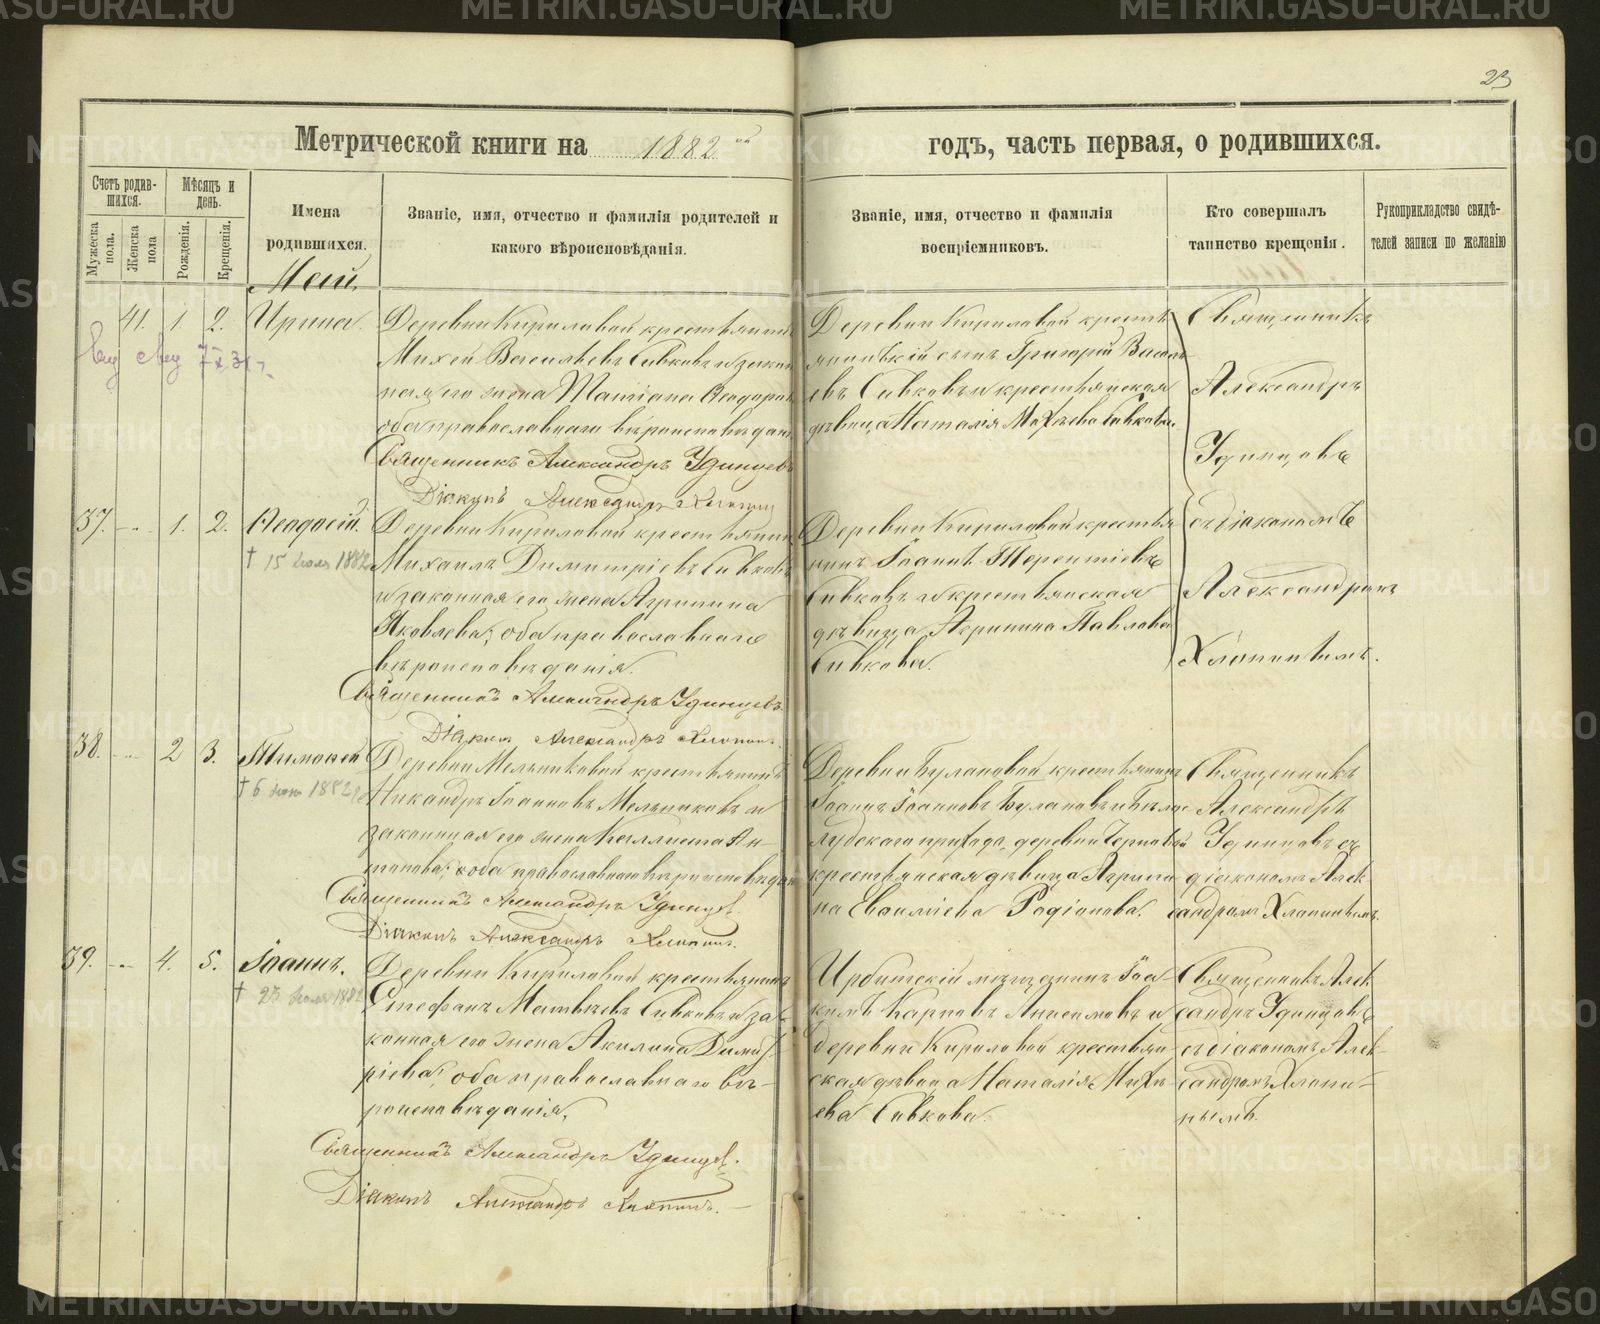 23
Метрической книги на 1882 ой годъ, часть первая, о родившихся.
Счетъ родив-
шихся.
Мужеска пола.
Женска пола
Мѣсяцъ и день.
Рожденія.
Крещенія.
Имена
родившихся.
Званіе, имя, отчество и фамилія родителей и
какого вѣроисповѣданія.
Званіе, имя, отчество и фамилія
воспріемниковъ.
Кто совершалъ
таинство крещенія.
Рукоприкладство свидѣ-
телей записи по желанію
Май.
41. 1. 2. Ирина.
Деревни Кириловой крестьянинъ
Михей Васильевъ Сивковъ и закон
ная его жена Татіана Ѳеодоров
оба православнаго вѣроисповѣдан
Священникъ Александръ Удинцевъ
Діаконъ Александръ Хлопинъ
Деревни Кириловой кресть
янинскій сынъ Григорій Василь
евъ Сивковъ и крестьянская
дѣвица Наталія Михѣева Сивкова.
Священникъ
Александръ
Удинцовъ
съ діакономъ
Александромъ
Хлопинымъ.
37. 1. 2. Ѳеодосій.
† 15 июля 1882
Деревни Кириловой крестьянинъ
Михаилъ Димитріевъ Сивковъ
и законная его жена Агрипина
Яковлева, оба православнаго
вѣроисповѣданія.
Священникъ Александръ Удинцевъ.
Діаконъ Александръ Хлопинъ.
Деревни Кириловой крестья
нинъ Іоаннъ Терентіевъ
Сивковъ и крестьянская
дѣвица Агрипина Павлова
Сивкова.
38. 2 3. Тимоѳей
† 6 1882
Деревни Мельниковой крестьянинъ
Никандръ Іоанновъ Мельниковъ и
законная его жена Каллиста Ан-
типова, оба православнаго вѣроисповѣдан
Священникъ Александръ Удинцев.
Діаконъ Александръ Хлопинъ.
Деревни Булановой крестьянинъ
Іоаннъ Іоанновъ Булановъ и Бѣло
лудскаго прихода, деревни Черновой
крестьянская дѣвица Агрипи
на Евѳиміева Родіонова.
Священникъ
Александръ
Удинцовъ съ
діакономъ Алек
сандромъ Хлопинымъ.
39. 4. 5. Іоаннъ.
† 23 июля 1882
Деревни Кириловой крестьянинъ
Стефанъ Матвѣевъ Сивковъ и за-
конная его жена Акилина Димит-
ріева, оба православнаго вѣ-
роисповѣданія,
Священникъ Александръ Удинцев.
Діаконъ Александръ Хлопинъ.
Ирбитскій мѣщанинъ Іоа
кимъ Карповъ Анисимовъ и
деревни Кириловой крестьян-
ская дѣвица Наталія Михѣ-
ева Сивкова.
Священникъ Алек
сандръ Удинцовъ
съ діакономъ Алек-
сандромъ Хлопи-
нымъ.